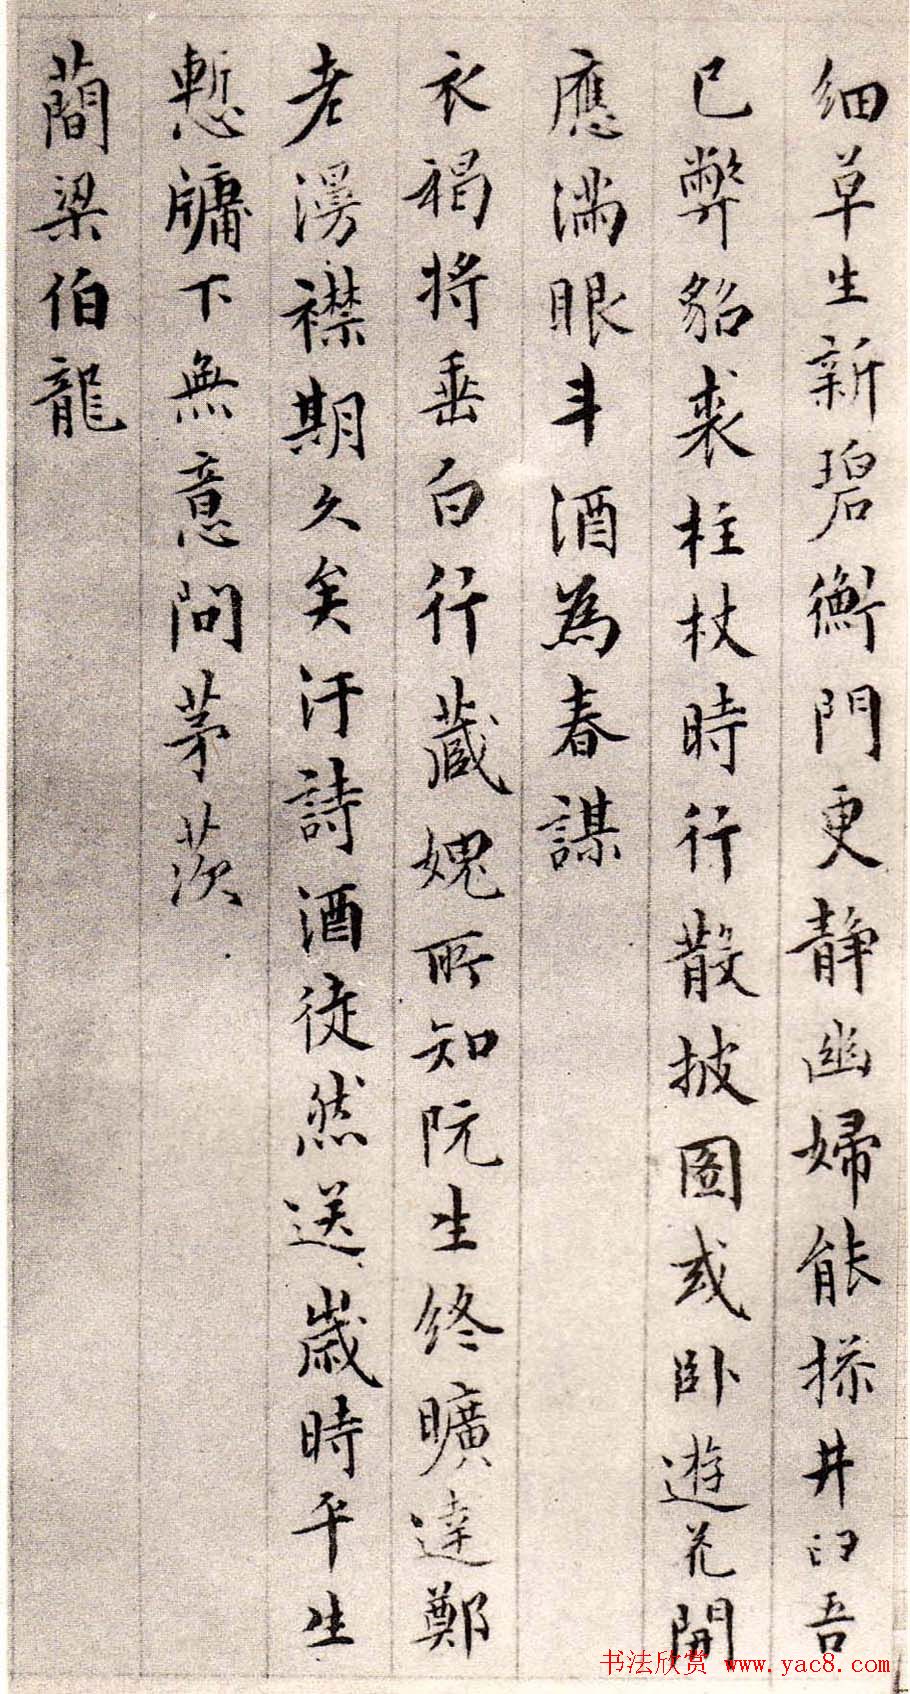 细草生新碧衡門更静幽婦能操井臼吾
已弊貂裘柱杖時行散披圖或卧遊花開
應滿眼斗酒為春謀
衣褐将垂白行藏媿所知阮生终曠達鄭
老漫襟期久矣汙詩酒徒然送嵗時平生
慙牗下無意問茅茨
蕳梁伯龍
书法欣赏 www.yac8.com